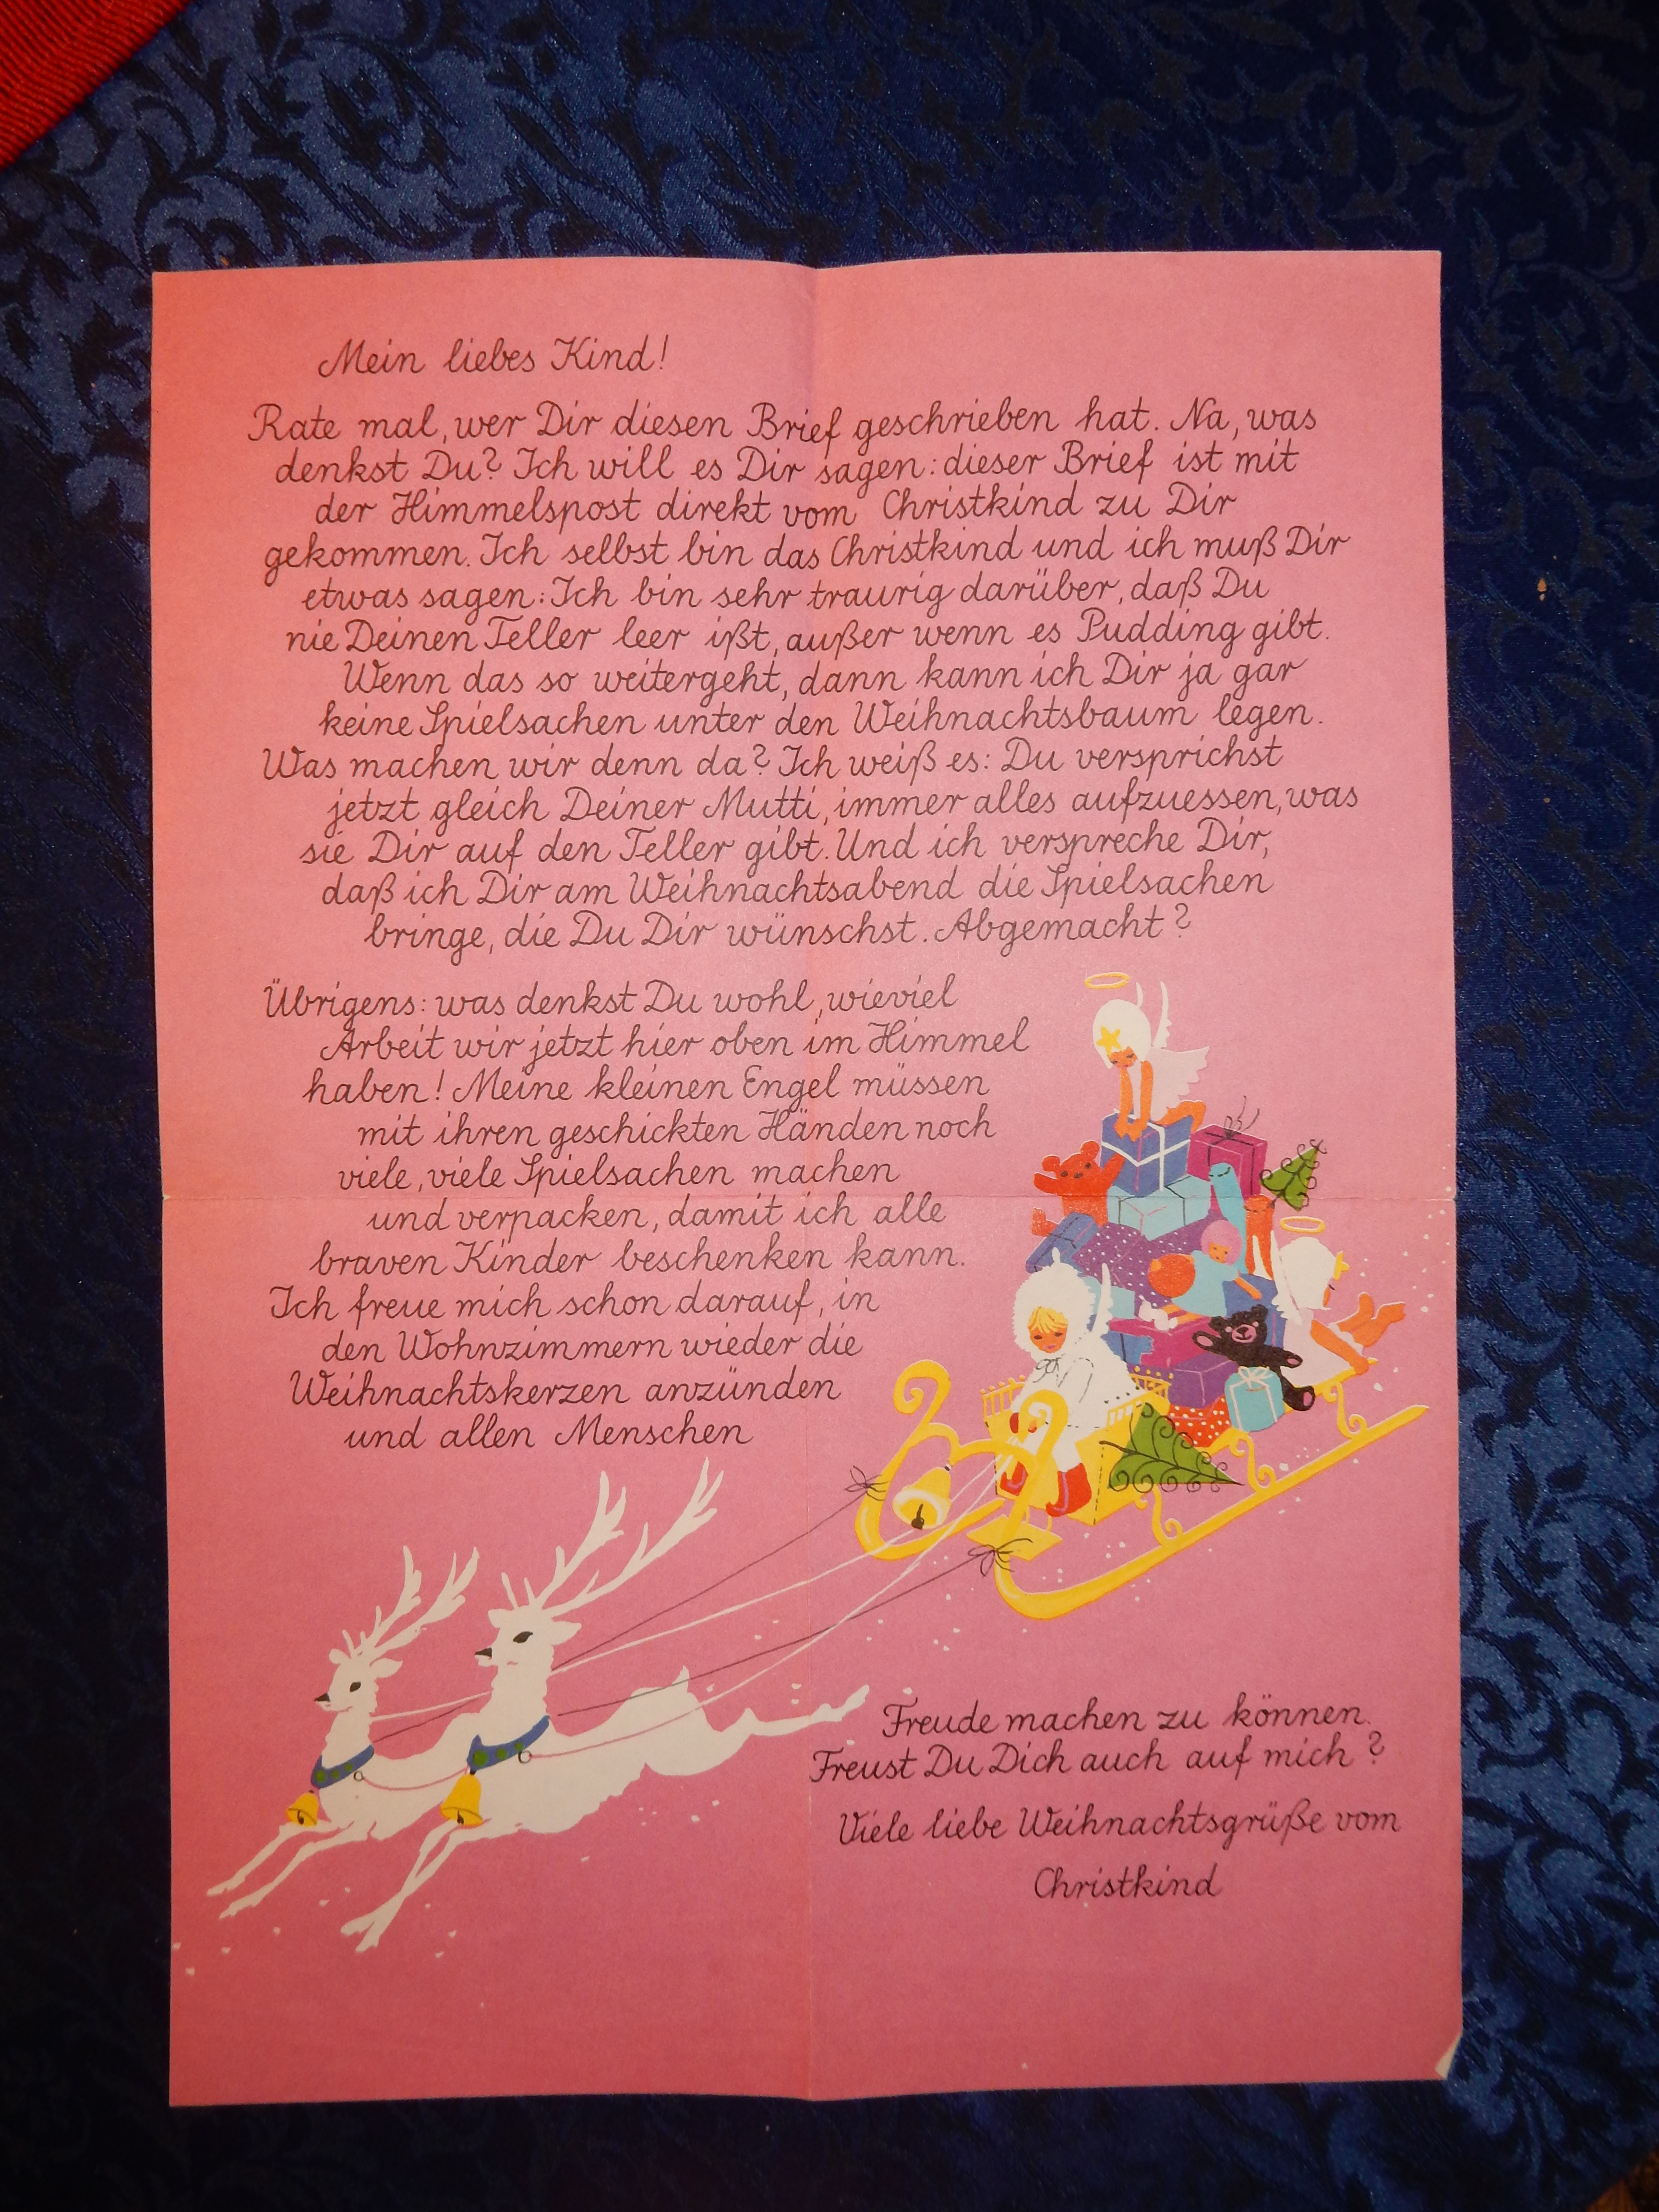 Mein liebes Kind!
Rate mal, wer Dir diesen Brief geschrieben hat. Na, was
denkst Du? Ich will es Dir sagen: dieser Brief ist mit
der Himmelspost direkt vom Christkind zu Dir
gekommen. Ich selbst bin das Christkind und ich muß Dir
etwas sagen: Ich bin sehr traurig darüber, daß Du
nie Deinen Teller leer ißt, außer wenn es Pudding gibt.
Wenn das so weitergeht, dann kann ich Dir ja gar
keine Spielsachen unter den Weihnachtsbaum legen.
Was machen wir denn da? Ich weiß es: Du versprichst
jetzt gleich Deiner Mutti, immer alles aufzuessen, was
sie Dir auf den Teller gibt. Und ich verspreche Dir,
daß ich Dir am Weihnachtsabend die Spielsachen
bringe, die Du Dir wünschst. Abgemacht?
Übrigens: was denkst Du wohl, wieviel
Arbeit wir jetzt hier oben im Himmel
haben! Meine kleinen Engel müssen
mit ihren geschickten Händen noch
viele, viele Spielsachen machen
und verpacken, damit ich alle
braven Kinder beschenken kann.
Ich freue mich schon darauf, in
den Wohnzimmern wieder die
Weihnachtskerzen anzünden
und allen Menschen
Freude machen zu können.
Freust Du Dich auch auf mich?
Viele liebe Weihnachtsgrüße vom
Christkind